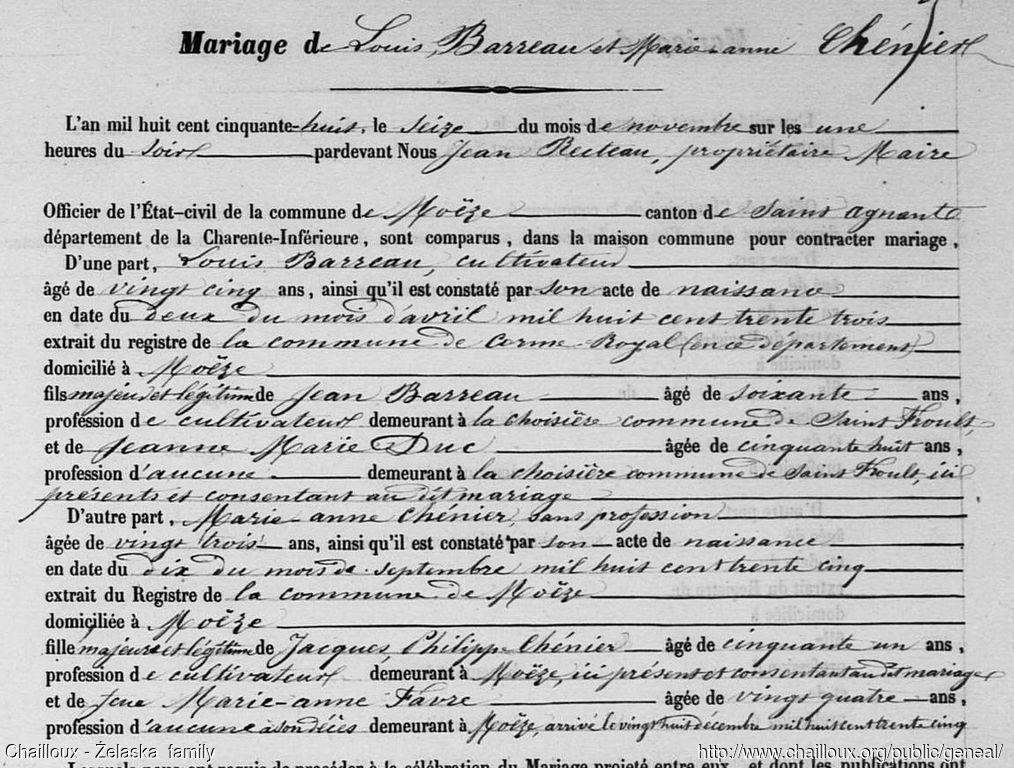 Mariage de Louis Barreau et Marie-anne Chénier
L'an mil huit cent cinquante-huit, le seize du mois de novembre sur les une
heures du soir pardevant Nous Jean Recteau, propriétaire Maire
Officier de l'État-civil de la commune de Moëze canton de Saint agnant
département de la Charente-Inférieure, sont comparus, dans la maison commune pour contracter mariage,
D'une part, Louis Barreau, cultivateur
âgé de vingt cinq ans, ainsi qu'il est constaté par son acte de naissance
en date du deux du mois d'avril mil huit cent trente trois
extrait du registre de la commune de Corme-Royal (en ce département)
domicilié à Moëze
fils majeur et légitime de Jean Barreau âgé de soixante ans,
profession de cultivateur demeurant à la choisière commune de Saint Froult,
et de Jeanne Marie Duc agée de cinquante huit ans,
profession d'aucune demeurant à la choisière commune de Saint Froult, ici
présents et consentant au dit mariage
D'autre part, Marie-anne Chénier, sans profession
âgée de vingt trois ans, ainsi qu'il est constaté par son acte de naissance
en date du dix du mois de septembre mil huit cent trente cinq
extrait du Registre de la commune de Moëze
domiciliée à Moëze
fille majeure et légitime de Jacques, Philippe Chénier âgé de cinquante un ans,
profession de cultivateur demeurant à Moëze, ici présent et consentant au dit mariage
et de feue Marie-anne Favre agée de vingt quatre ans,
profession d'aucune à son décès demeurant à Moëze, arrivé le vingt huit décembre mil huit cent trente cinq
Lesquels nous ont requis de procéder à la célébration du Mariage projeté entre eux, et dont les publications ont
Chailloux - Želaska family
http://www.chailloux.org/public/geneal/